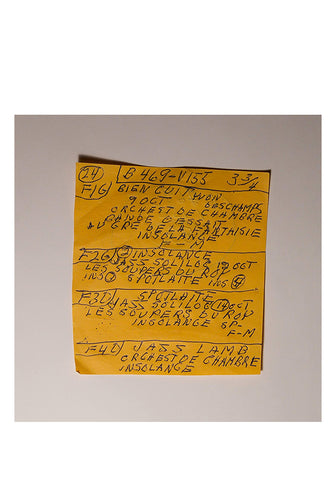 24 B 469-V155 3-3/4
F1G BIEN CUIT YVON
9 OCT DESCHAMPS
ORCHEST DE CHAMBRE
CAUDE DESSAIT
AU GRE DE LA FANTAISIE
INSOLANGE
F-M
F2G 3 INSOLANCE
JASS SOLILOQ 19 OCT
LES SOUPERS DU ROY
INS SPOILAITE INS
F3D SPOILAITE
JASS SOLILOQ OCT
LES SOUPERS DU ROY
INSOLANGE SP-
F-M
F4D JASS LAMB
ORCHEST DE CHAMBRE
INSOLANGE